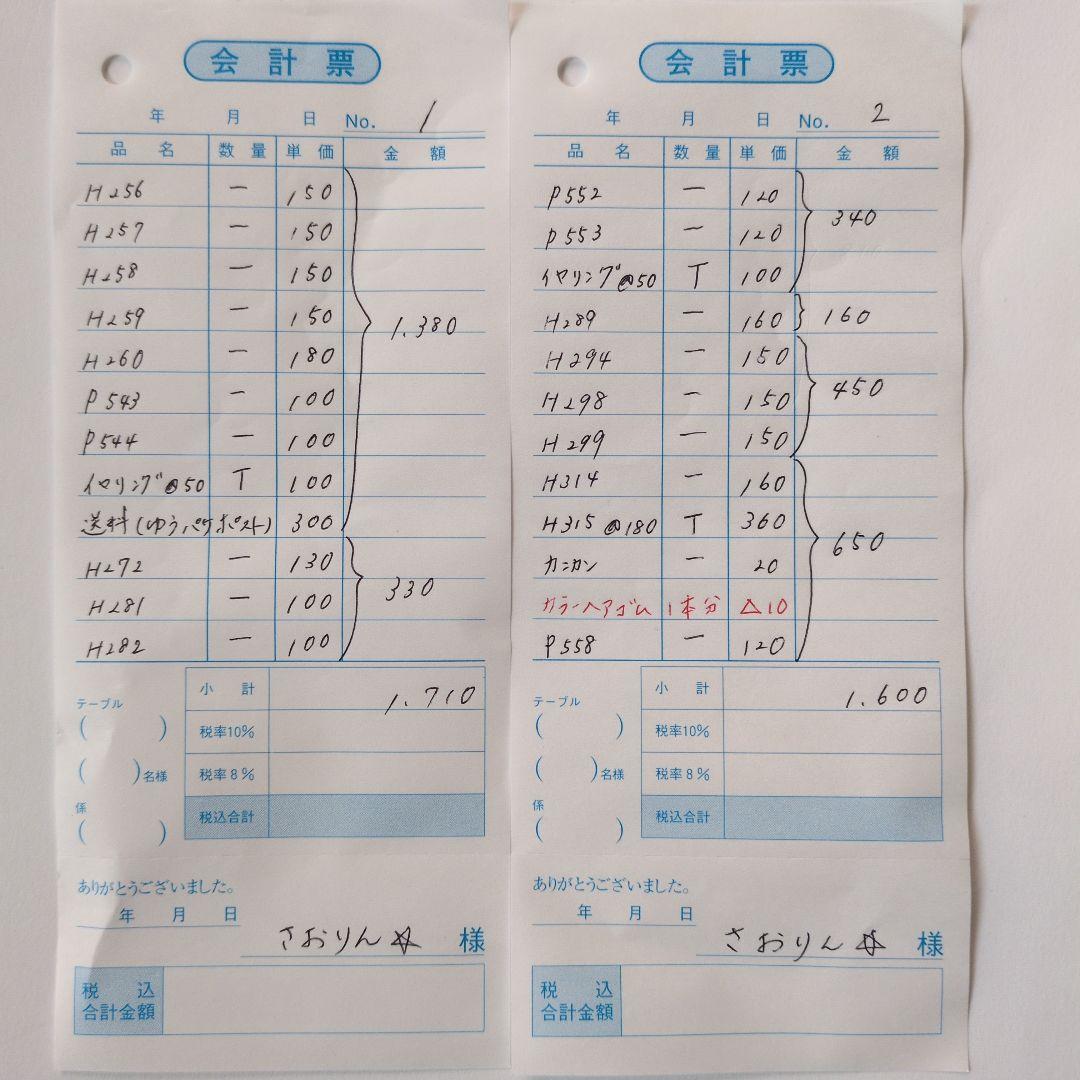 会計票
年 月 日 No. 1
品名 数量 単価 金額
H256 一 150
H257 一 150
H258 一 150
H259 一 150
1.380
H260 一 180
P543 一 100
P544 一 100
イヤリング@50 T 100
送料(ゆうパケポスト) 300
H272 一 130
330
H281 一 100
H282 一 100
小計 1.710
テーブル
( )
税率10%
( )名様
税率8%
係
( )
税込合計
ありがとうございました。
年 月 日
さおりん☆ 様
税込
合計金額
会計票
年 月 日 No. 2
品名 数量 単価 金額
P552 一 120
340
P553 一 120
イヤリング@50 T 100
H289 一 160 160
H294 一 150
450
H298 一 150
H299 一 150
H314 一 160
H315 @180 T 360
650
カニカン 一 20
カラーヘアゴム 1本分 △10
P558 一 120
小計 1.600
テーブル
( )
税率10%
( )名様
税率8%
係
( )
税込合計
ありがとうございました。
年 月 日
さおりん☆ 様
税込
合計金額